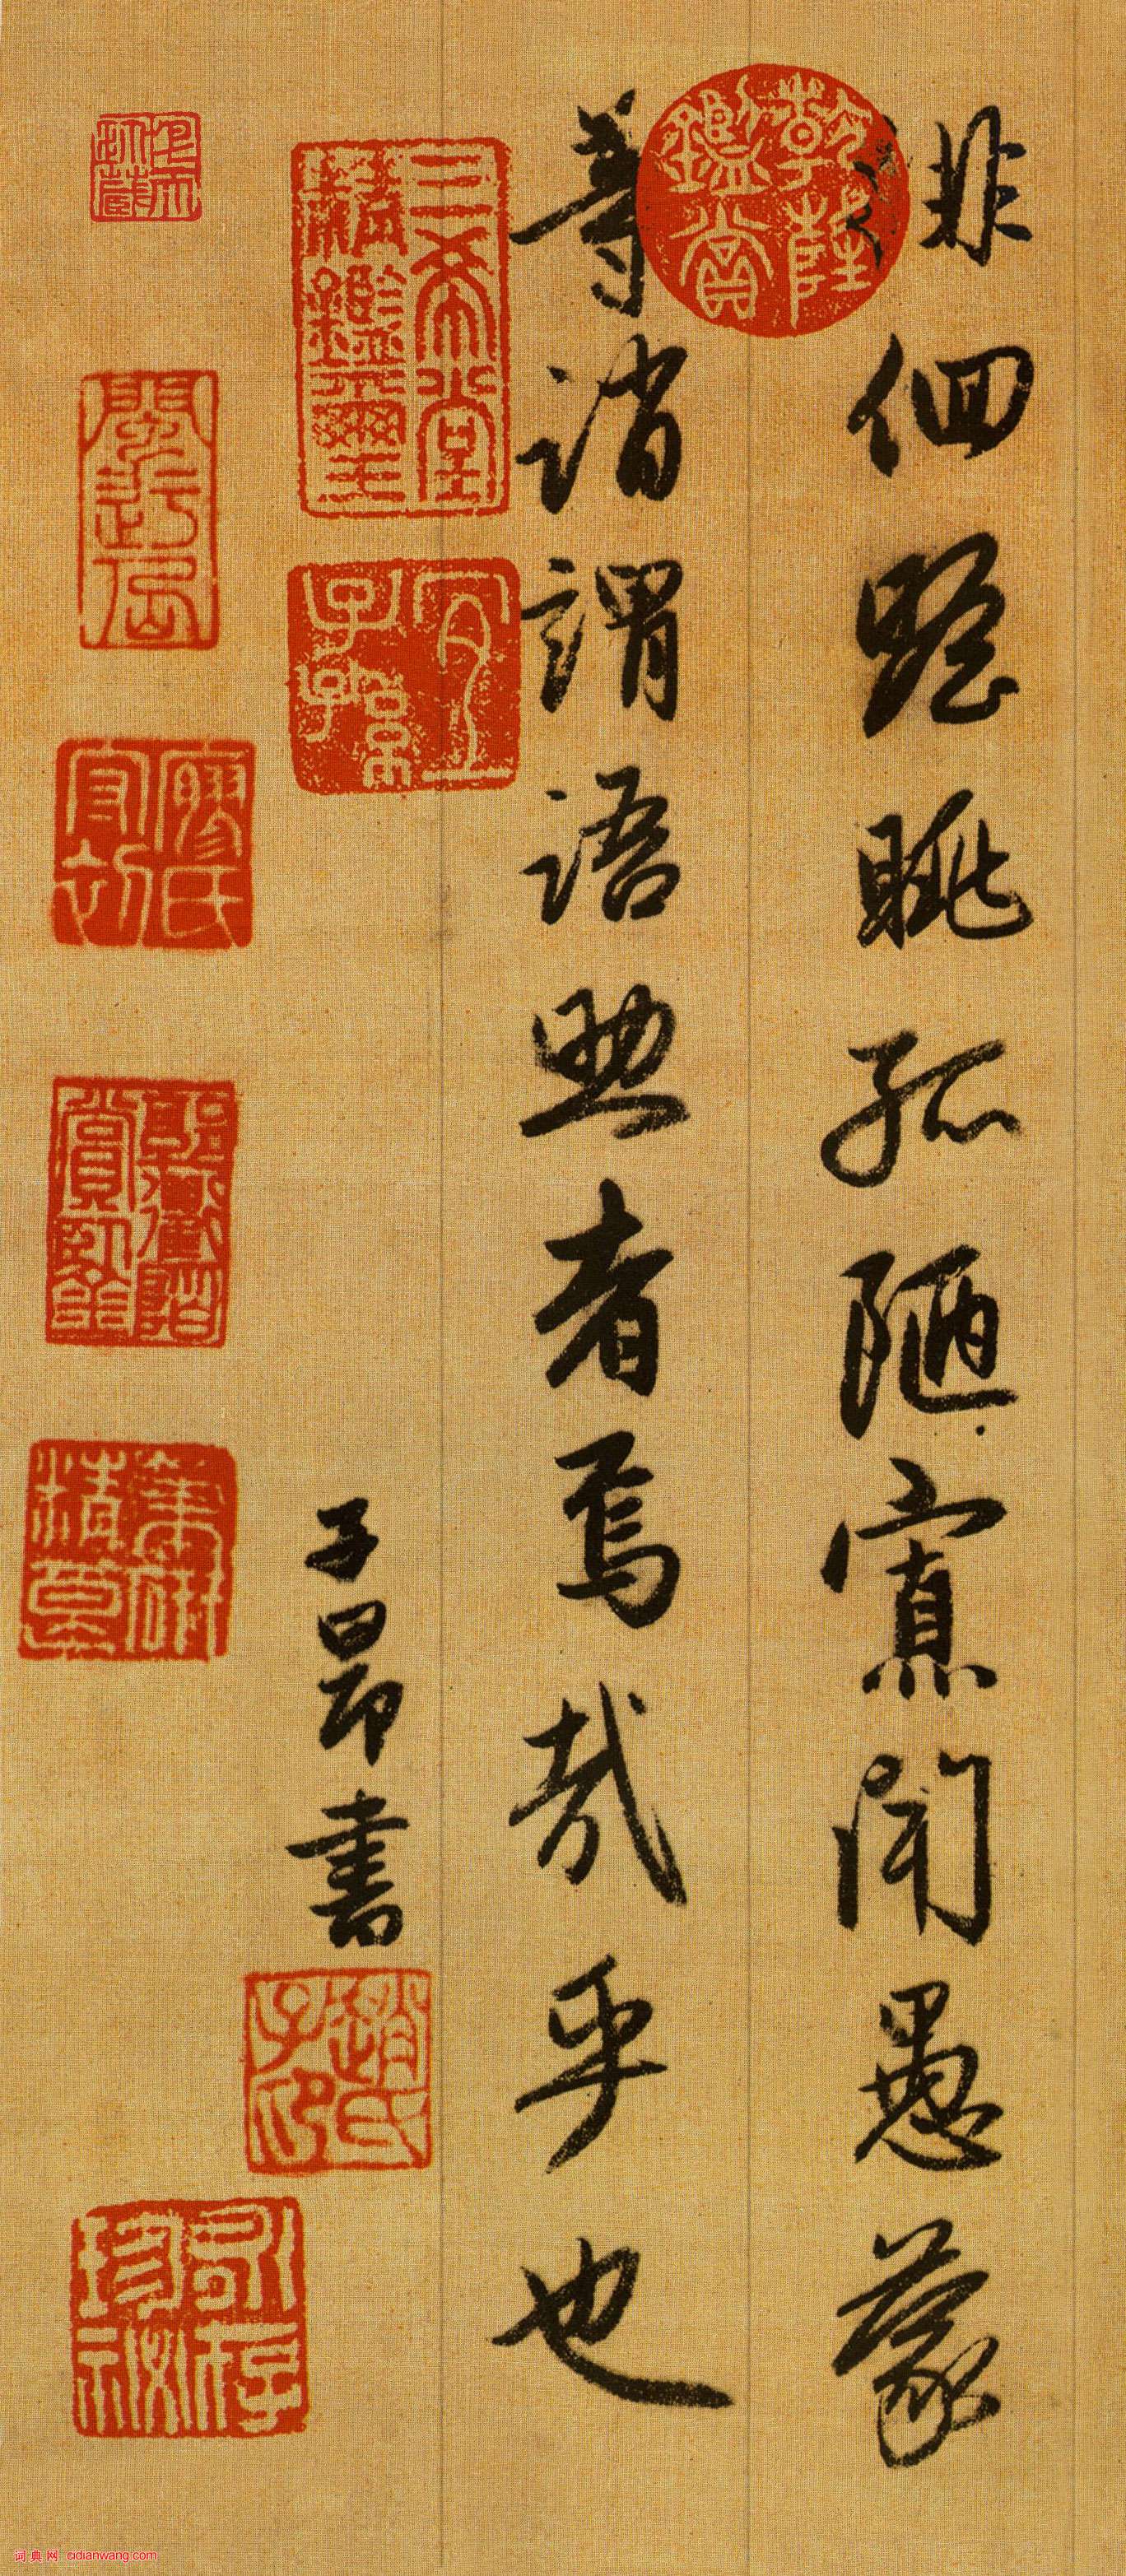 徘徊瞻眺孤陋寡聞愚蒙
等誚謂語助者焉哉乎也
子昂書
乾隆鑑賞
三希堂精鑑璽
宜子孫
趙氏子印
词典网 cidianwang.com